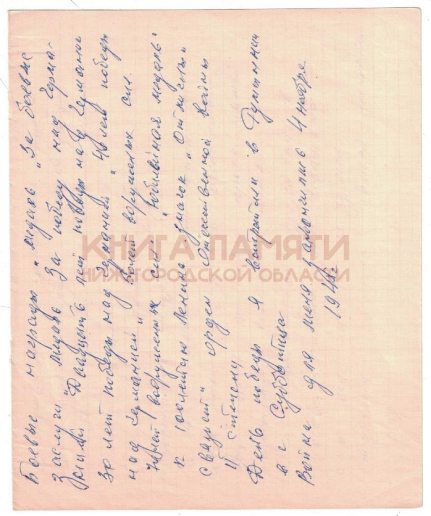 Боевые награды: медаль „За боевые
заслуги" медаль За победу над Герма-
нией „Двадцать лет победы над Германией
30 лет победы над Германией" 40 лет победы
над Германией" лет вооруженных сил
лет вооруженных сил" Юбилейная медаль"
к 100летию Ленина, значок „Отличный
орден Отечественной войны
II степени
День победы я встретил в Румынии
в г
Война для меня кончилась 4 ноября
КНИГА ПАМЯТИ
НИЖЕГОРОДСКОЙ ОБЛАСТИ